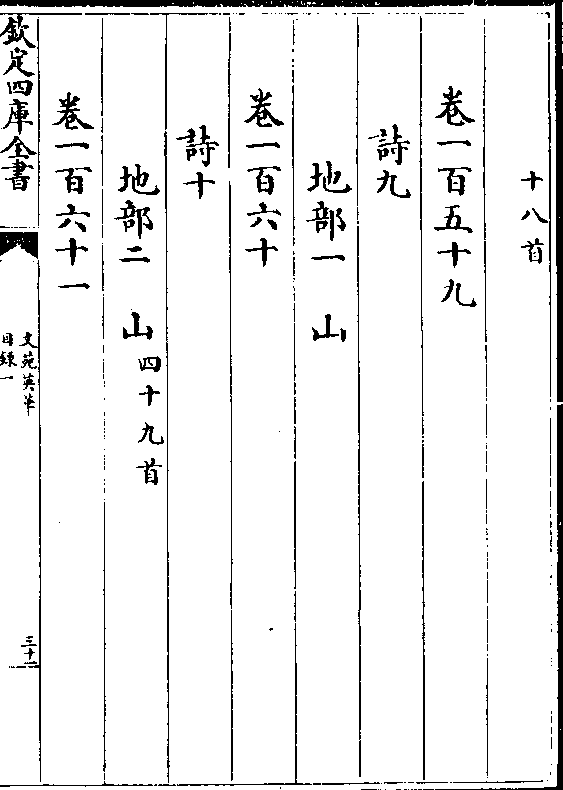 十八首
卷一百五十九
詩九
地部一　山
卷一百六十
詩十
地部二　山四十九首
卷一百六十一
欽定四庫全書
文苑英華
目録一
三十二